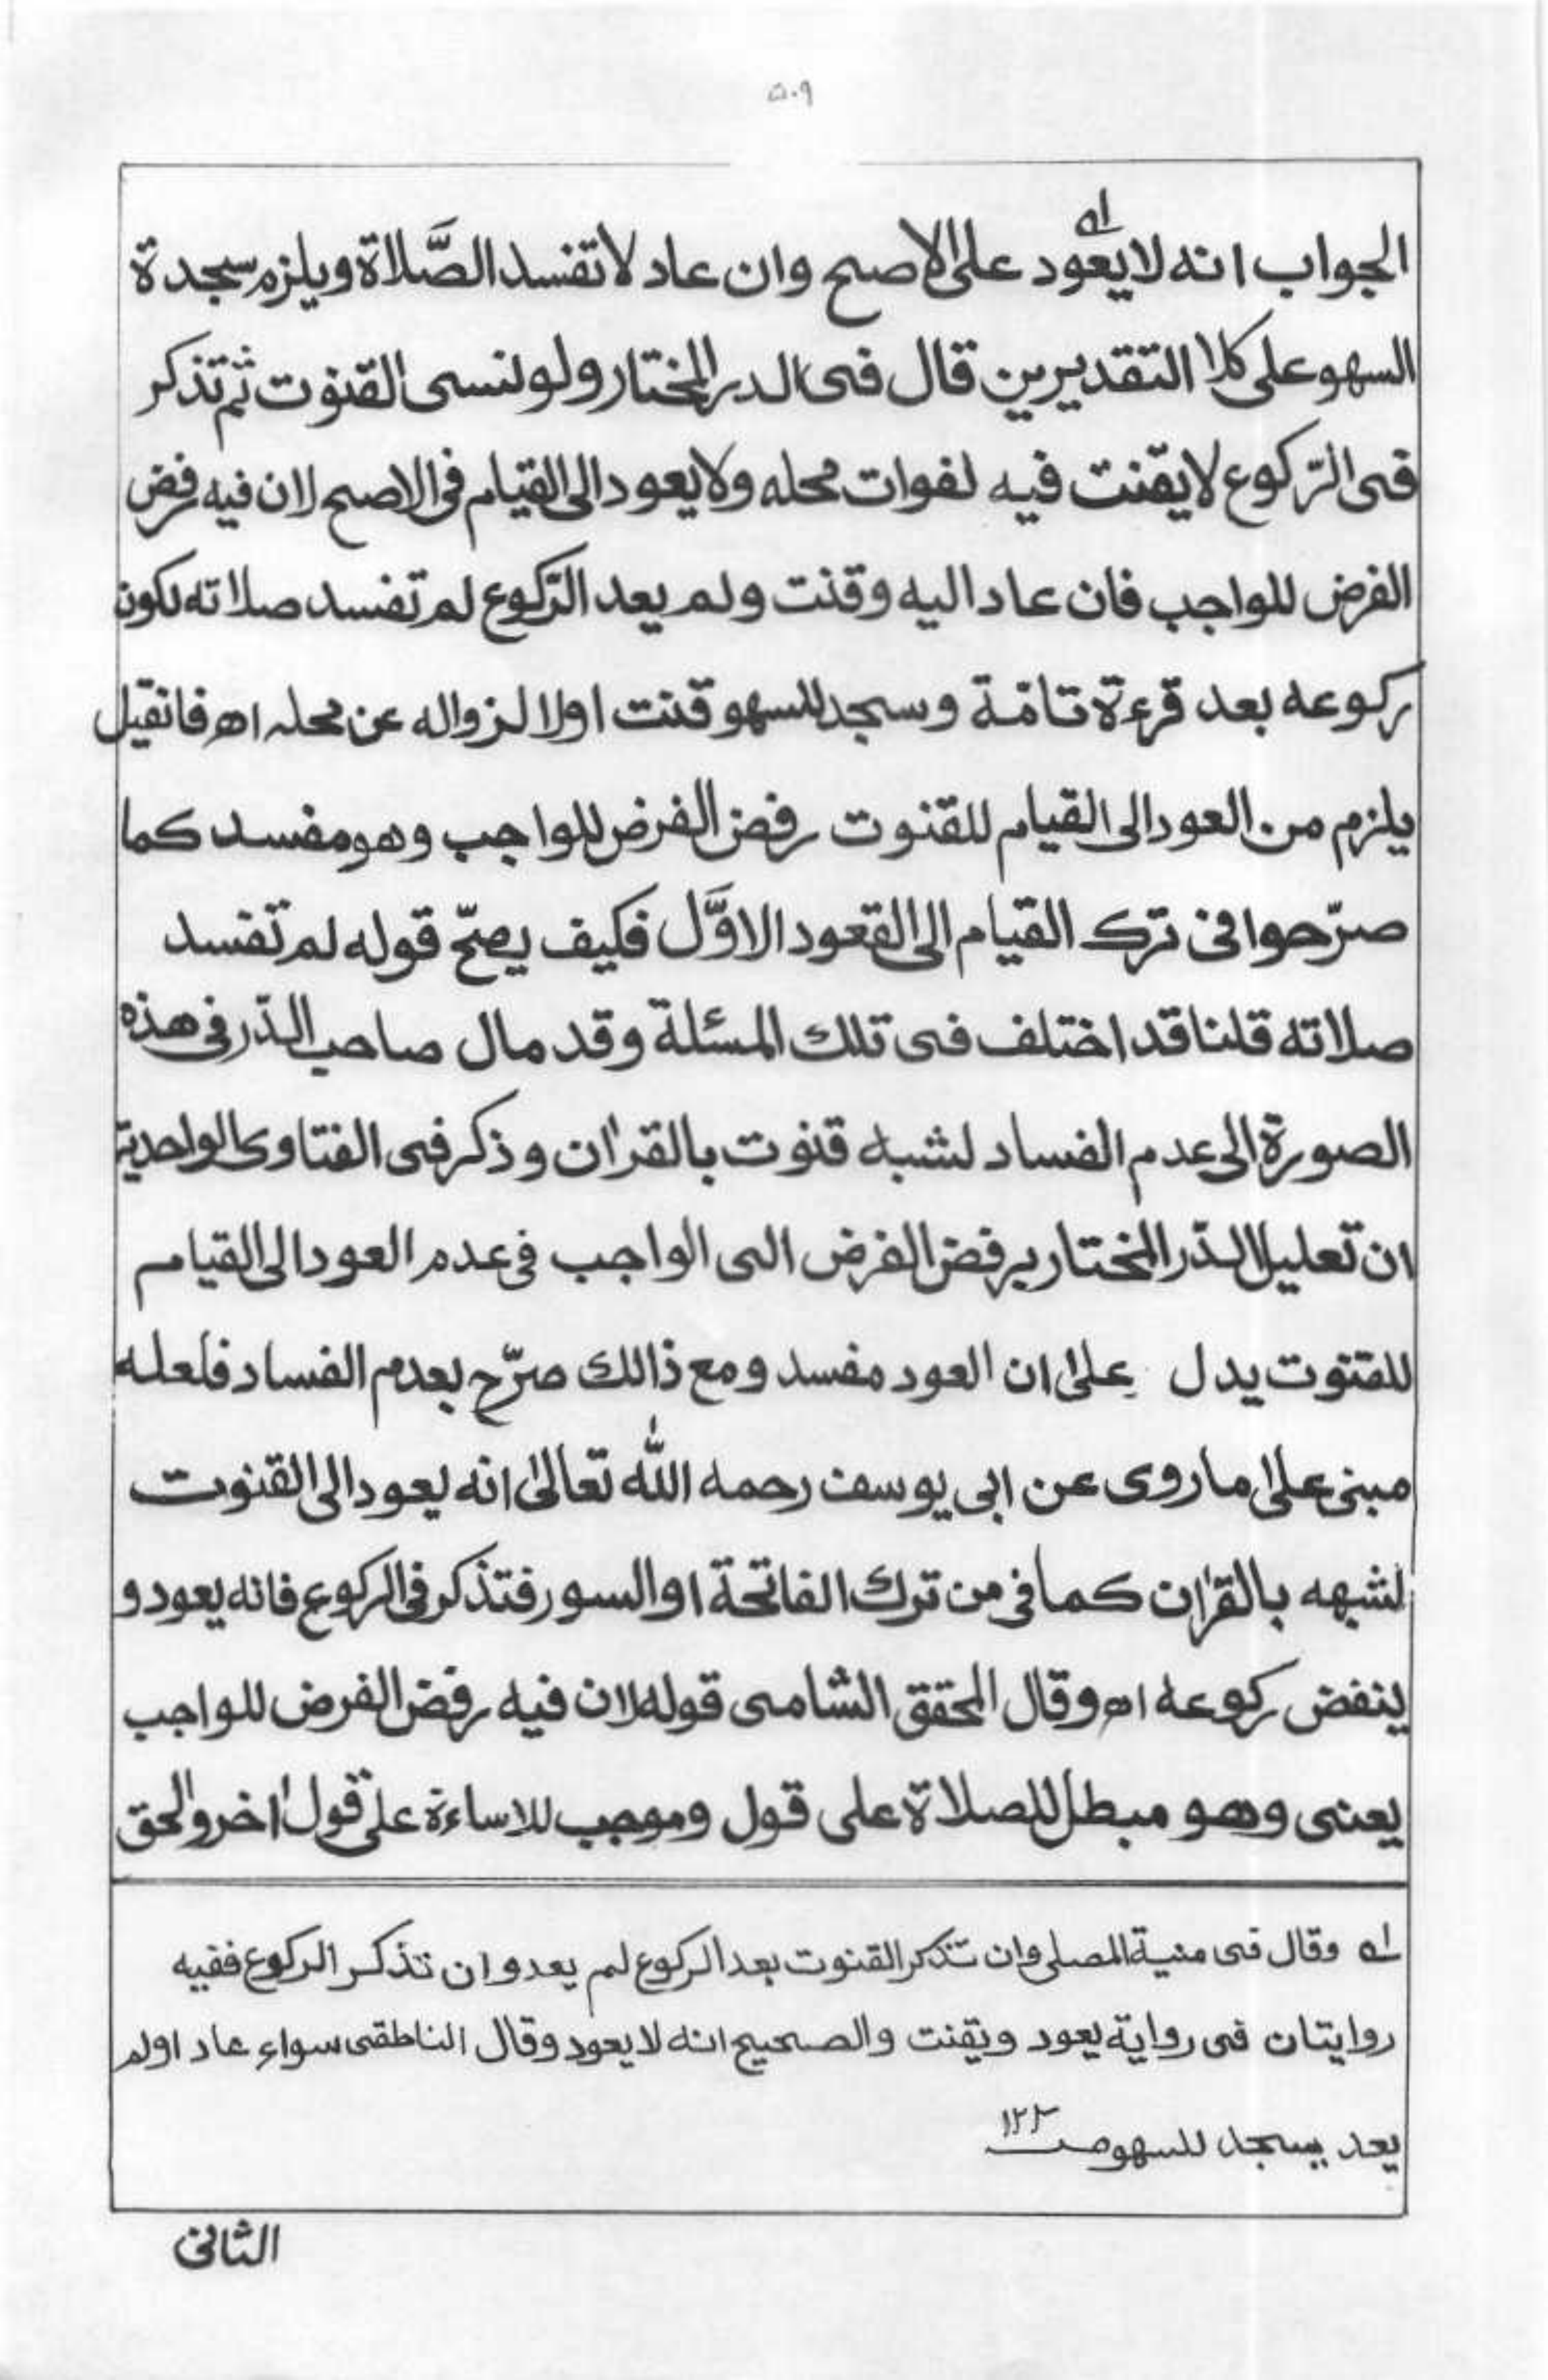 ٥٠٩
الجواب انه لا يعود ١ه على الاصح وان عاد لا تفسد الصَّلاة ويلزم سجدة
السهو على كلا التقديرين قال فى الدر المختار ولو نسى القنوت ثم تذكر
فى الرّكوع لا يقنت فيه لفوات محله ولا يعود الى القيام فى الاصح لان فيه رفض
الفرض للواجب فان عاد اليه وقنت ولم يعد الرّكوع لم تفسد صلاته لكون
ركوعه بعد قرءة تامّة وسجد للسهو قنت اولا لزواله عن محله اه فان قيل
يلزم من العود الى القيام للقنوت رفض الفرض للواجب وهو مفسد كما
صرّحوا فى ترك القيام الى القعود الاوَّل فكيف يصحّ قوله لم تفسد
صلاته قلنا قد اختلف فى تلك المسئلة وقد مال صاحب الدّر فى هذه
الصورة الى عدم الفساد لشبه قنوت بالقراٰن وذكر فى الفتاوى الواحدية
ان تعليل الدّر المختار برفض الفرض الى الواجب فى عدم العود الى القيام
للقنوت يدل على ان العود مفسد ومع ذالك صرّح بعدم الفساد فلعله
مبنى على ما روى عن ابى يوسف رحمه الله تعالىٰ انه يعود الى القنوت
لشبهه بالقراٰن كما فى من ترك الفاتحة او السور فتذكر فى الركوع فانه يعود و
ينفض ركوعه اه وقال المحقق الشامى قوله لان فيه رفض الفرض للواجب
يعنى وهو مبطل للصلاة على قول وموجب للاساءة على قول اٰخر والحق
١ه وقال فى منية المصلى وان تذكر القنوت بعد الركوع لم يعد وان تذكر الركوع ففيه
روايتان فى رواية يعود ويقنت والصحيح انه لا يعود وقال الناطقى سواء عاد او لم
يعد يسجد للسهو صـ ١٢٢
الثانى